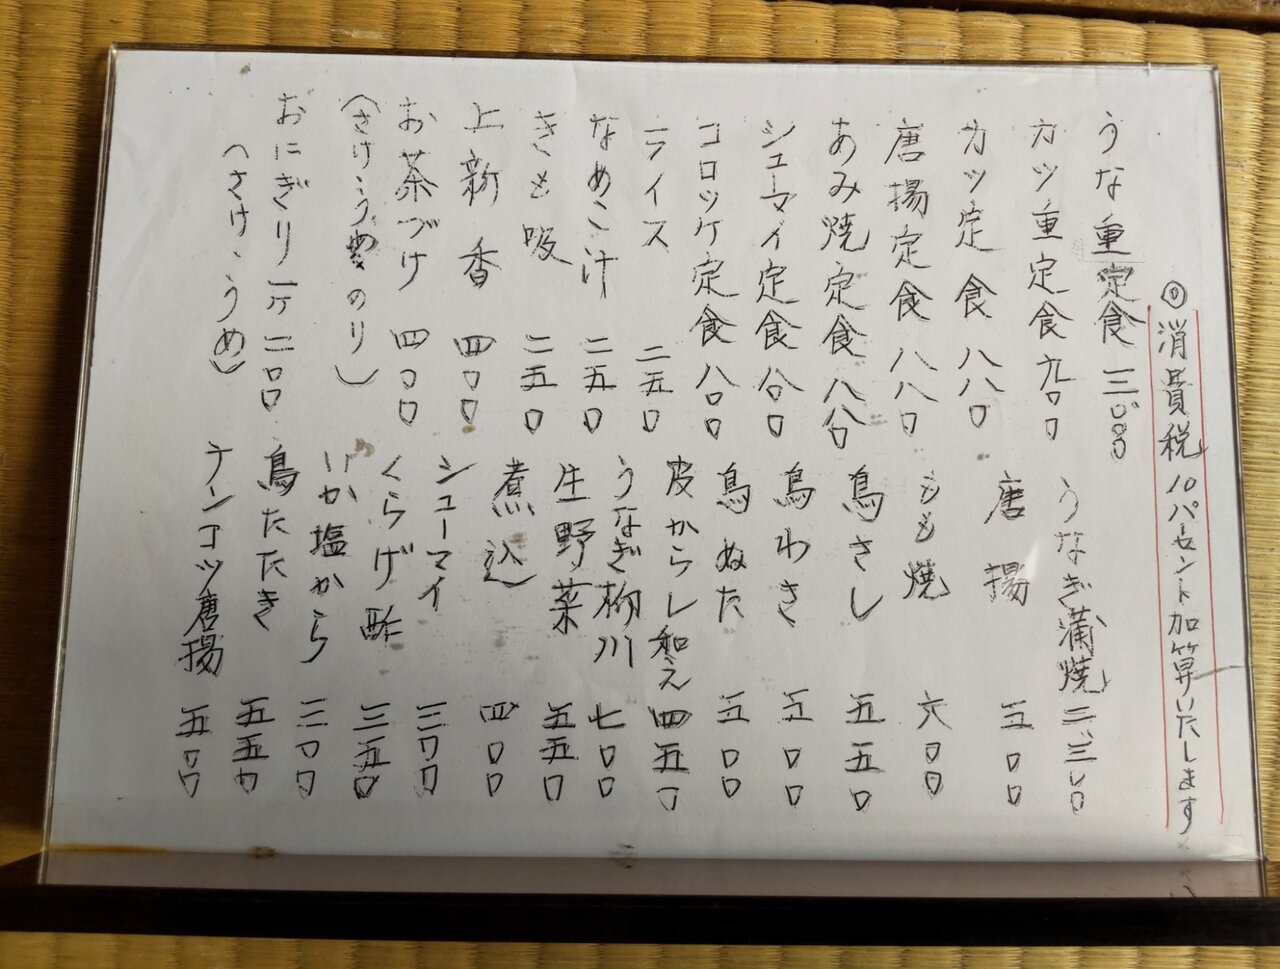 ◎消費税10パーセント加算いたします
うな重定食 三、〇〇〇
カツ重定食 九〇〇
カツ定食 八八〇
唐揚定食 八八〇
あみ焼定食 八八〇
シューマイ定食 八〇〇
コロッケ定食 八〇〇
ライス 二五〇
なめこ汁 二五〇
きも吸 二五〇
上新香 四〇〇
お茶づけ 四〇〇
(さけ、うめ、のり)
おにぎり一ヶ 二〇〇
(さけ、うめ)
うなぎ蒲焼
唐揚 五〇〇
もも焼 六〇〇
鳥さし 五五〇
鳥わさ 五〇〇
鳥ぬた 五〇〇
皮からし和え 四五〇
うなぎ柳川 七〇〇
生野菜 五五〇
煮込 四〇〇
シューマイ 三〇〇
くらげ酢 三五〇
いか塩から 三〇〇
鳥たたき 五五〇
ナンコツ唐揚 五〇〇